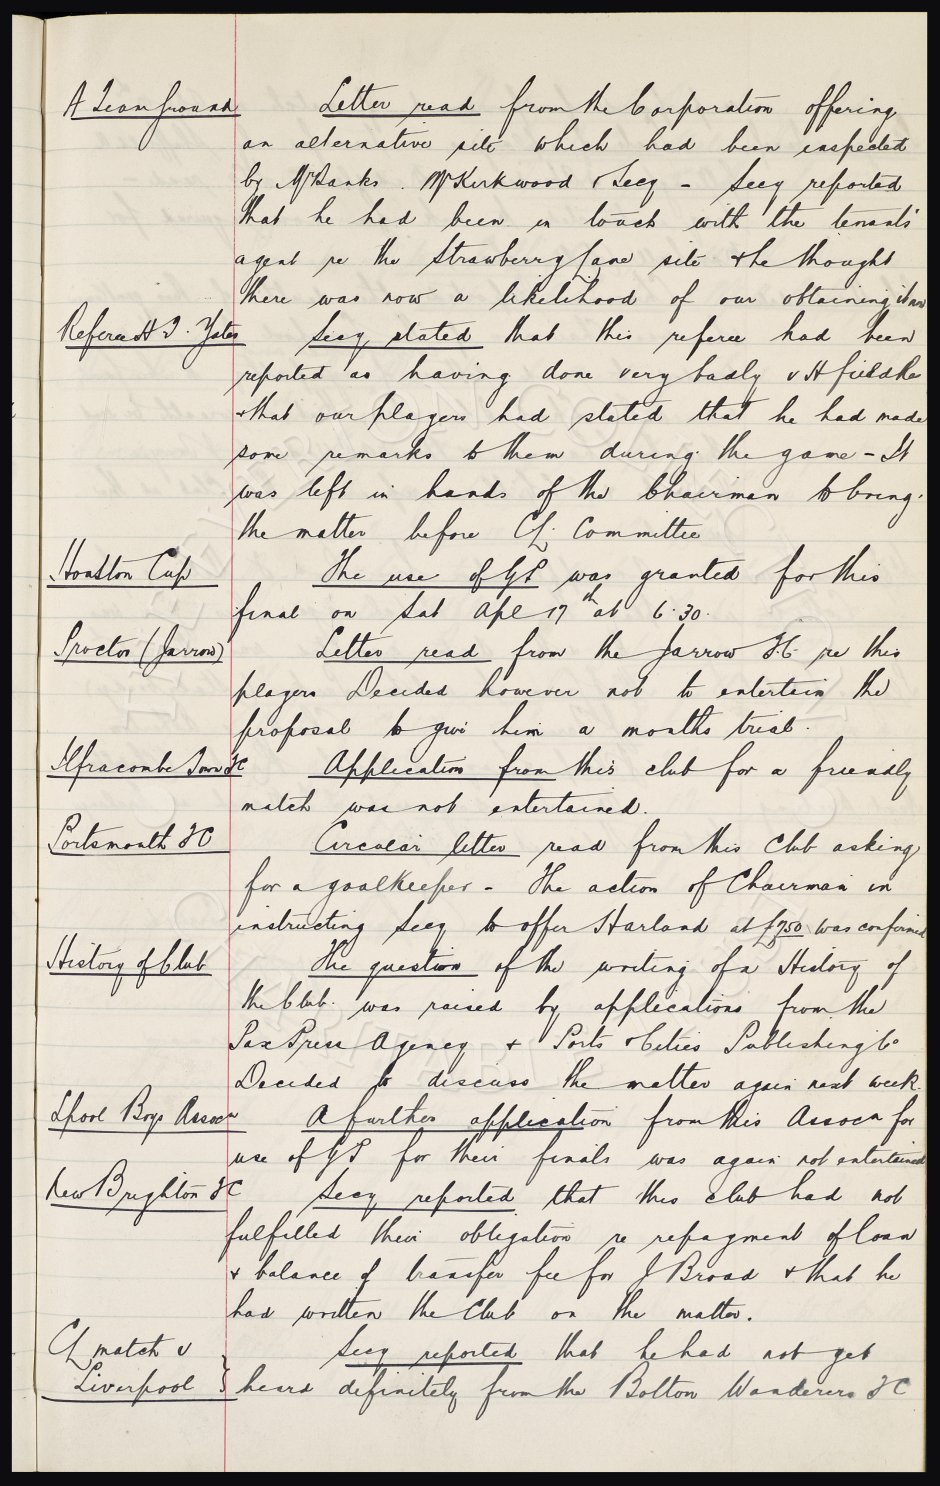 A Team Ground Letter read from the Corporation offering
an alternative site which had been inspected
by Mr Banks. Mr Kirkwood & Secy - Secy reported
that he had been in touch with the tenants'
agent re the Strawberry Lane site & he thought
there was now a likelihood of our obtaining it now
Referee H T. Yates Secy, stated that this referee had been
reported as having done very badly v H field
& that our players had stated that he had made
some remarks to them during the game - It
was left in hands of the Chairman to bring
the matter before CL Committee
Houston Cup The use of GP was granted for this
final on Sat Apl 17th at 6.30.
Proctor (Jarrow) Letter read from the Jarrow F.C. re this
players Decided however not to entertain the
proposal to give him a months trial.
Ilfracombe Town FC Application from this club for a friendly
match was not entertained.
Portsmouth FC Circular letter read from this Club asking
for a goalkeeper - The action of Chairman in
instructing Secy to offer Harland at £750 was confirmed
History of Club The question of the writing of a History of
the Club. was raised by applications from the
Pax Press Agency & Ports & Cities Publishing Co
Decided to discuss the matter again next week.
Lpool Boys Assocn A further application from this Assocn for
use of GP for their finals was again not entertained
New Brighton FC Secy reported that this club had not
fulfilled their obligation re repayment of loan
& balance of transfer fee for J Broad & that he
had written the Club on the matter.
CL match v Secy reported that he had not yet
Liverpool } heard definitely from the Bolton Wanderers FC